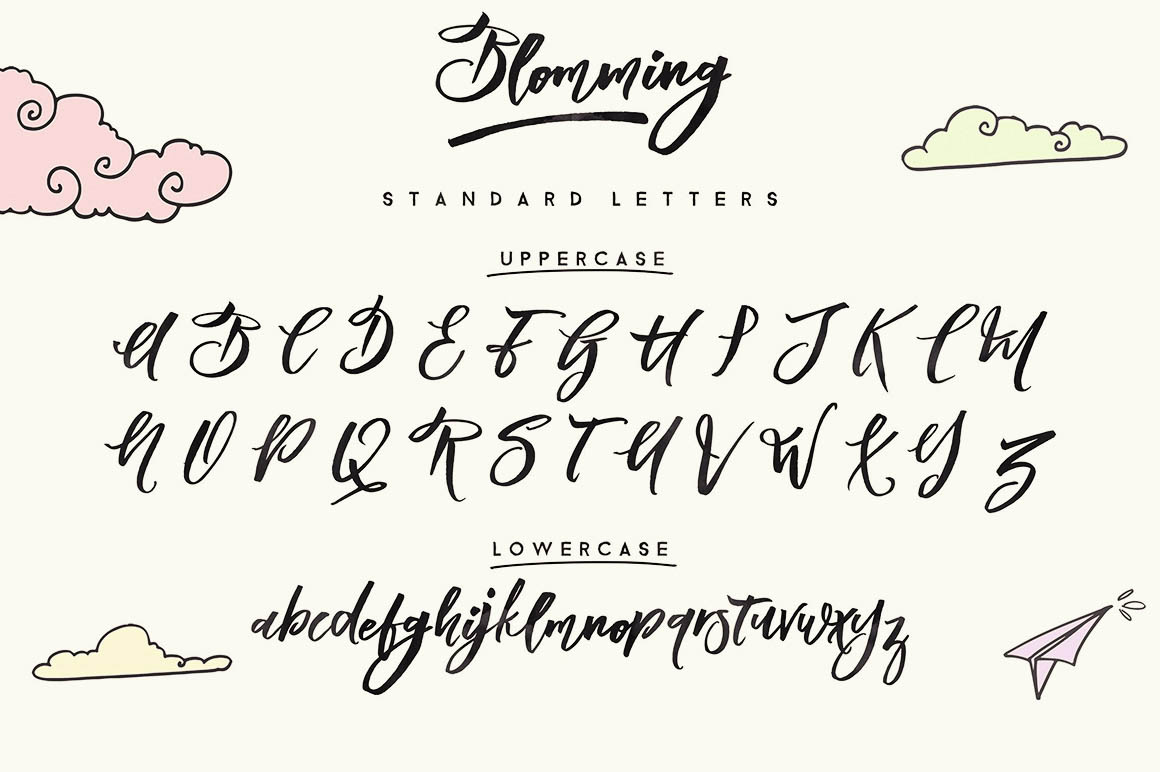 Blomming
STANDARD LETTERS
UPPERCASE
A B C D E F G H I J K L M
N O P Q R S T U V W X Y Z
LOWERCASE
abcdefghijklmnopqrstuvwxyz